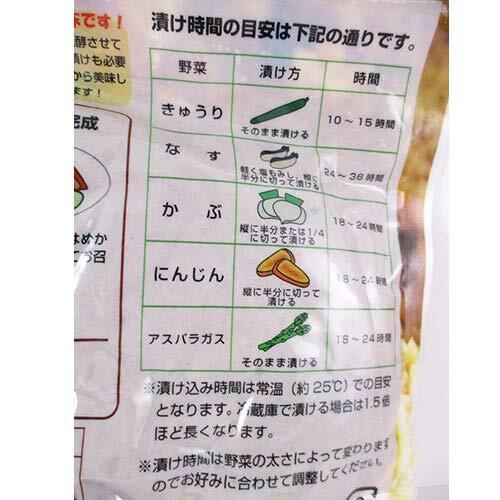 です!
酵させて
漬けも必要
から美味し
ます!
完成
はぬか
召
漬け時間の目安は下記の通りです。
野菜 漬け方 時間
きゅうり そのまま漬ける 10～15時間
なす 軽く塩もみし、縦に
半分に切って漬ける 24～36時間
かぶ 縦に半分または1/4
に切って漬ける 18～24時間
にんじん 縦に半分に切って
漬ける 18～24時間
アスパラガス そのまま漬ける 18～24時間
※漬け込み時間は常温（約25℃）での目安
となります。冷蔵庫で漬ける場合は1.5倍
ほど長くなります。
※漬け時間は野菜の太さによって変わります
のでお好みに合わせて調整してください。